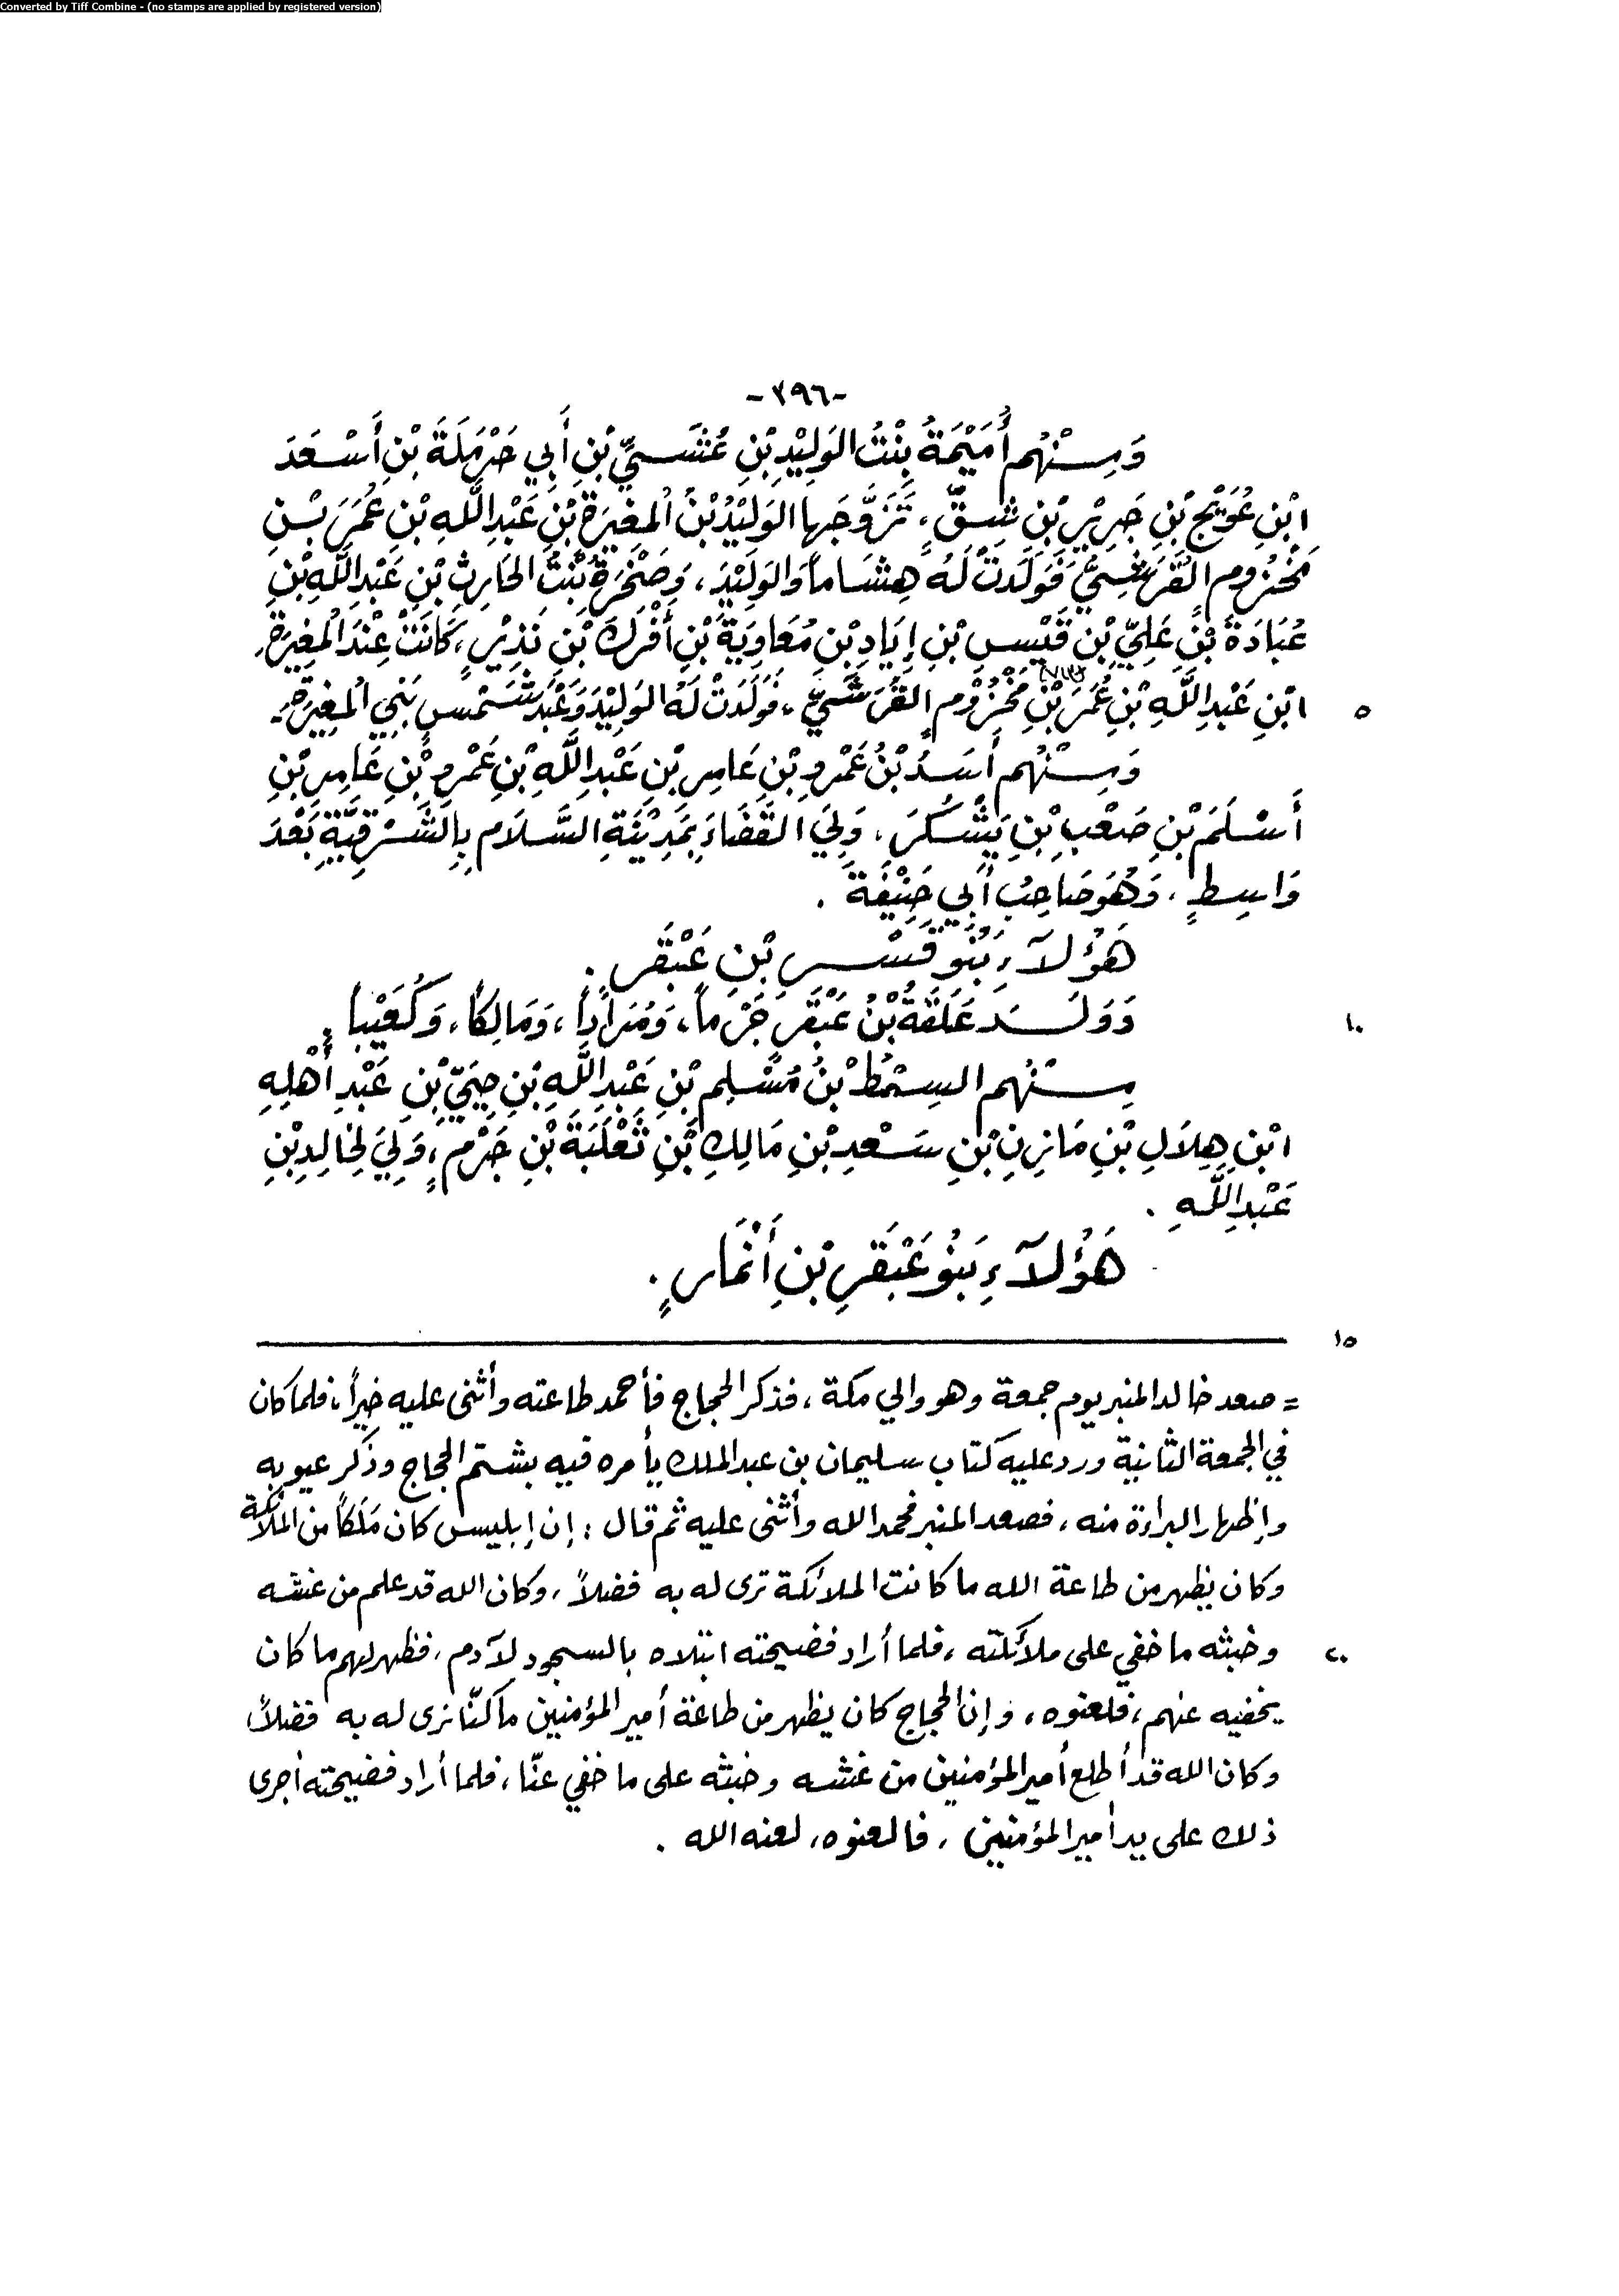 Converted by Tiff Combine - (no stamps are applied by registered version)
-٢٩٦-
وَمِنْهُم أُمَيْمَةُ بِنْتُ الوَلِيْدِ بْنِ عُشَيِّ بْنِ أَبِي حَرْمَلَةَ بْنِ أَسْعَدَ
ابْنِ عُوَيْجِ بْنِ جَرِيْرِ بْنِ شِقٍّ، تَزَوَّجَها الوَلِيْدُ بْنُ المُغِيْرَةِ بْنِ عَبْدِ اللَّهِ بْنِ عُمَرَ بْنِ
مَخْزُومٍ القُرَشِيُّ فَوَلَدَتْ لَهُ هِشَاماً وَالوَلِيْدَ، وَصَخْرَةُ بِنْتُ الحَارِثِ بْنِ عَبْدِ اللَّهِ بْنِ
عُبَادَةَ بْنِ عَلِيِّ بْنِ قَيْسِ بْنِ إِيَادِ بْنِ مُعَاوِيَةَ بْنِ أَفْرَكَ بْنِ نَذِيْرٍ، كَانَتْ عِنْدَ المُغِيْرَةِ
ابْنِ عَبْدِ اللَّهِ بْنِ عُمَرَ بْنِ مَخْزُوْمٍ القُرَشِيِّ، فَوَلَدَتْ لَهُ الوَلِيْدَ وَعَبْدَ شَمْسٍ بَنِي المُغِيْرَةِ.
٥
وَمِنْهُم أَسَدُ بْنُ عَمْرِو بْنِ عَامِرِ بْنِ عَبْدِ اللَّهِ بْنِ عَمْرِو بْنِ عَامِرِ بْنِ
أَسْلَمَ بْنِ صَعْبِ بْنِ يَشْكُرَ، وَلِيَ القَضَاءَ بِمَدِيْنَةِ السَّلَامِ بِالشَّرْقِيَّةِ بَعْدَ
وَاسِطٍ، وَهُوَ صَاحِبُ أَبِي حَنِيْفَةَ.
هَؤُلآءِ بَنُو قَسْرِ بْنِ عَبْقَرٍ.
وَوَلَدَ عَلَقَةُ بْنُ عَبْقَرَ جَرْماً، وَمُرَاداً، وَمَالِكاً، وَكُعَيْباً.
١٠
مِنْهُم السِمْطُ بْنُ مُسْلِمِ بْنِ عَبْدِ اللَّهِ بْنِ حِيَيِّ بْنِ عَبْدِ أَهْلِهِ
ابْنِ هِلَالِ بْنِ مَازِنِ بْنِ سَعْدِ بْنِ مَالِكِ بْنِ ثَعْلَبَةَ بْنِ جَرْمٍ، وَلِيَ لِخَالِدِ بْنِ
عَبْدِ اللَّهِ.
هَؤُلآءِ بَنُو عَبْقَرِ بْنِ أَنْمَارٍ.
١٥
= صعد خالد المنبر يوم جمعة وهو والي مكة، فذكر الحجاج فأحمد طاعته وأثنى عليه خيراً، فلما كان
في الجمعة الثانية ورد عليه كتاب سليمان بن عبد الملك يأمره فيه بشتم الحجاج وذكر عيوبه
وإظهار البراءة منه، فصعد المنبر فحمد الله وأثنى عليه ثم قال: إن إبليس كان مَلَكاً من الملائكة
وكان يظهر من طاعة الله ما كانت الملائكة ترى له به فضلاً، وكان الله قد علم من غشه
وخبثه ما خفي على ملائكته، فلما أراد فضيحته ابتلاه بالسجود لآدم، فظهر لهم ما كان
٢٠
يخفيه عنهم، فلعنوه، وإن الحجاج كان يظهر من طاعة أمير المؤمنين ما كنّا نرى له به فضلاً
وكان الله قد أطلع أمير المؤمنين من غشه وخبثه على ما خفي عنّا، فلما أراد فضيحته أجرى
ذلك على يد أمير المؤمنين، فالعنوه، لعنه الله.